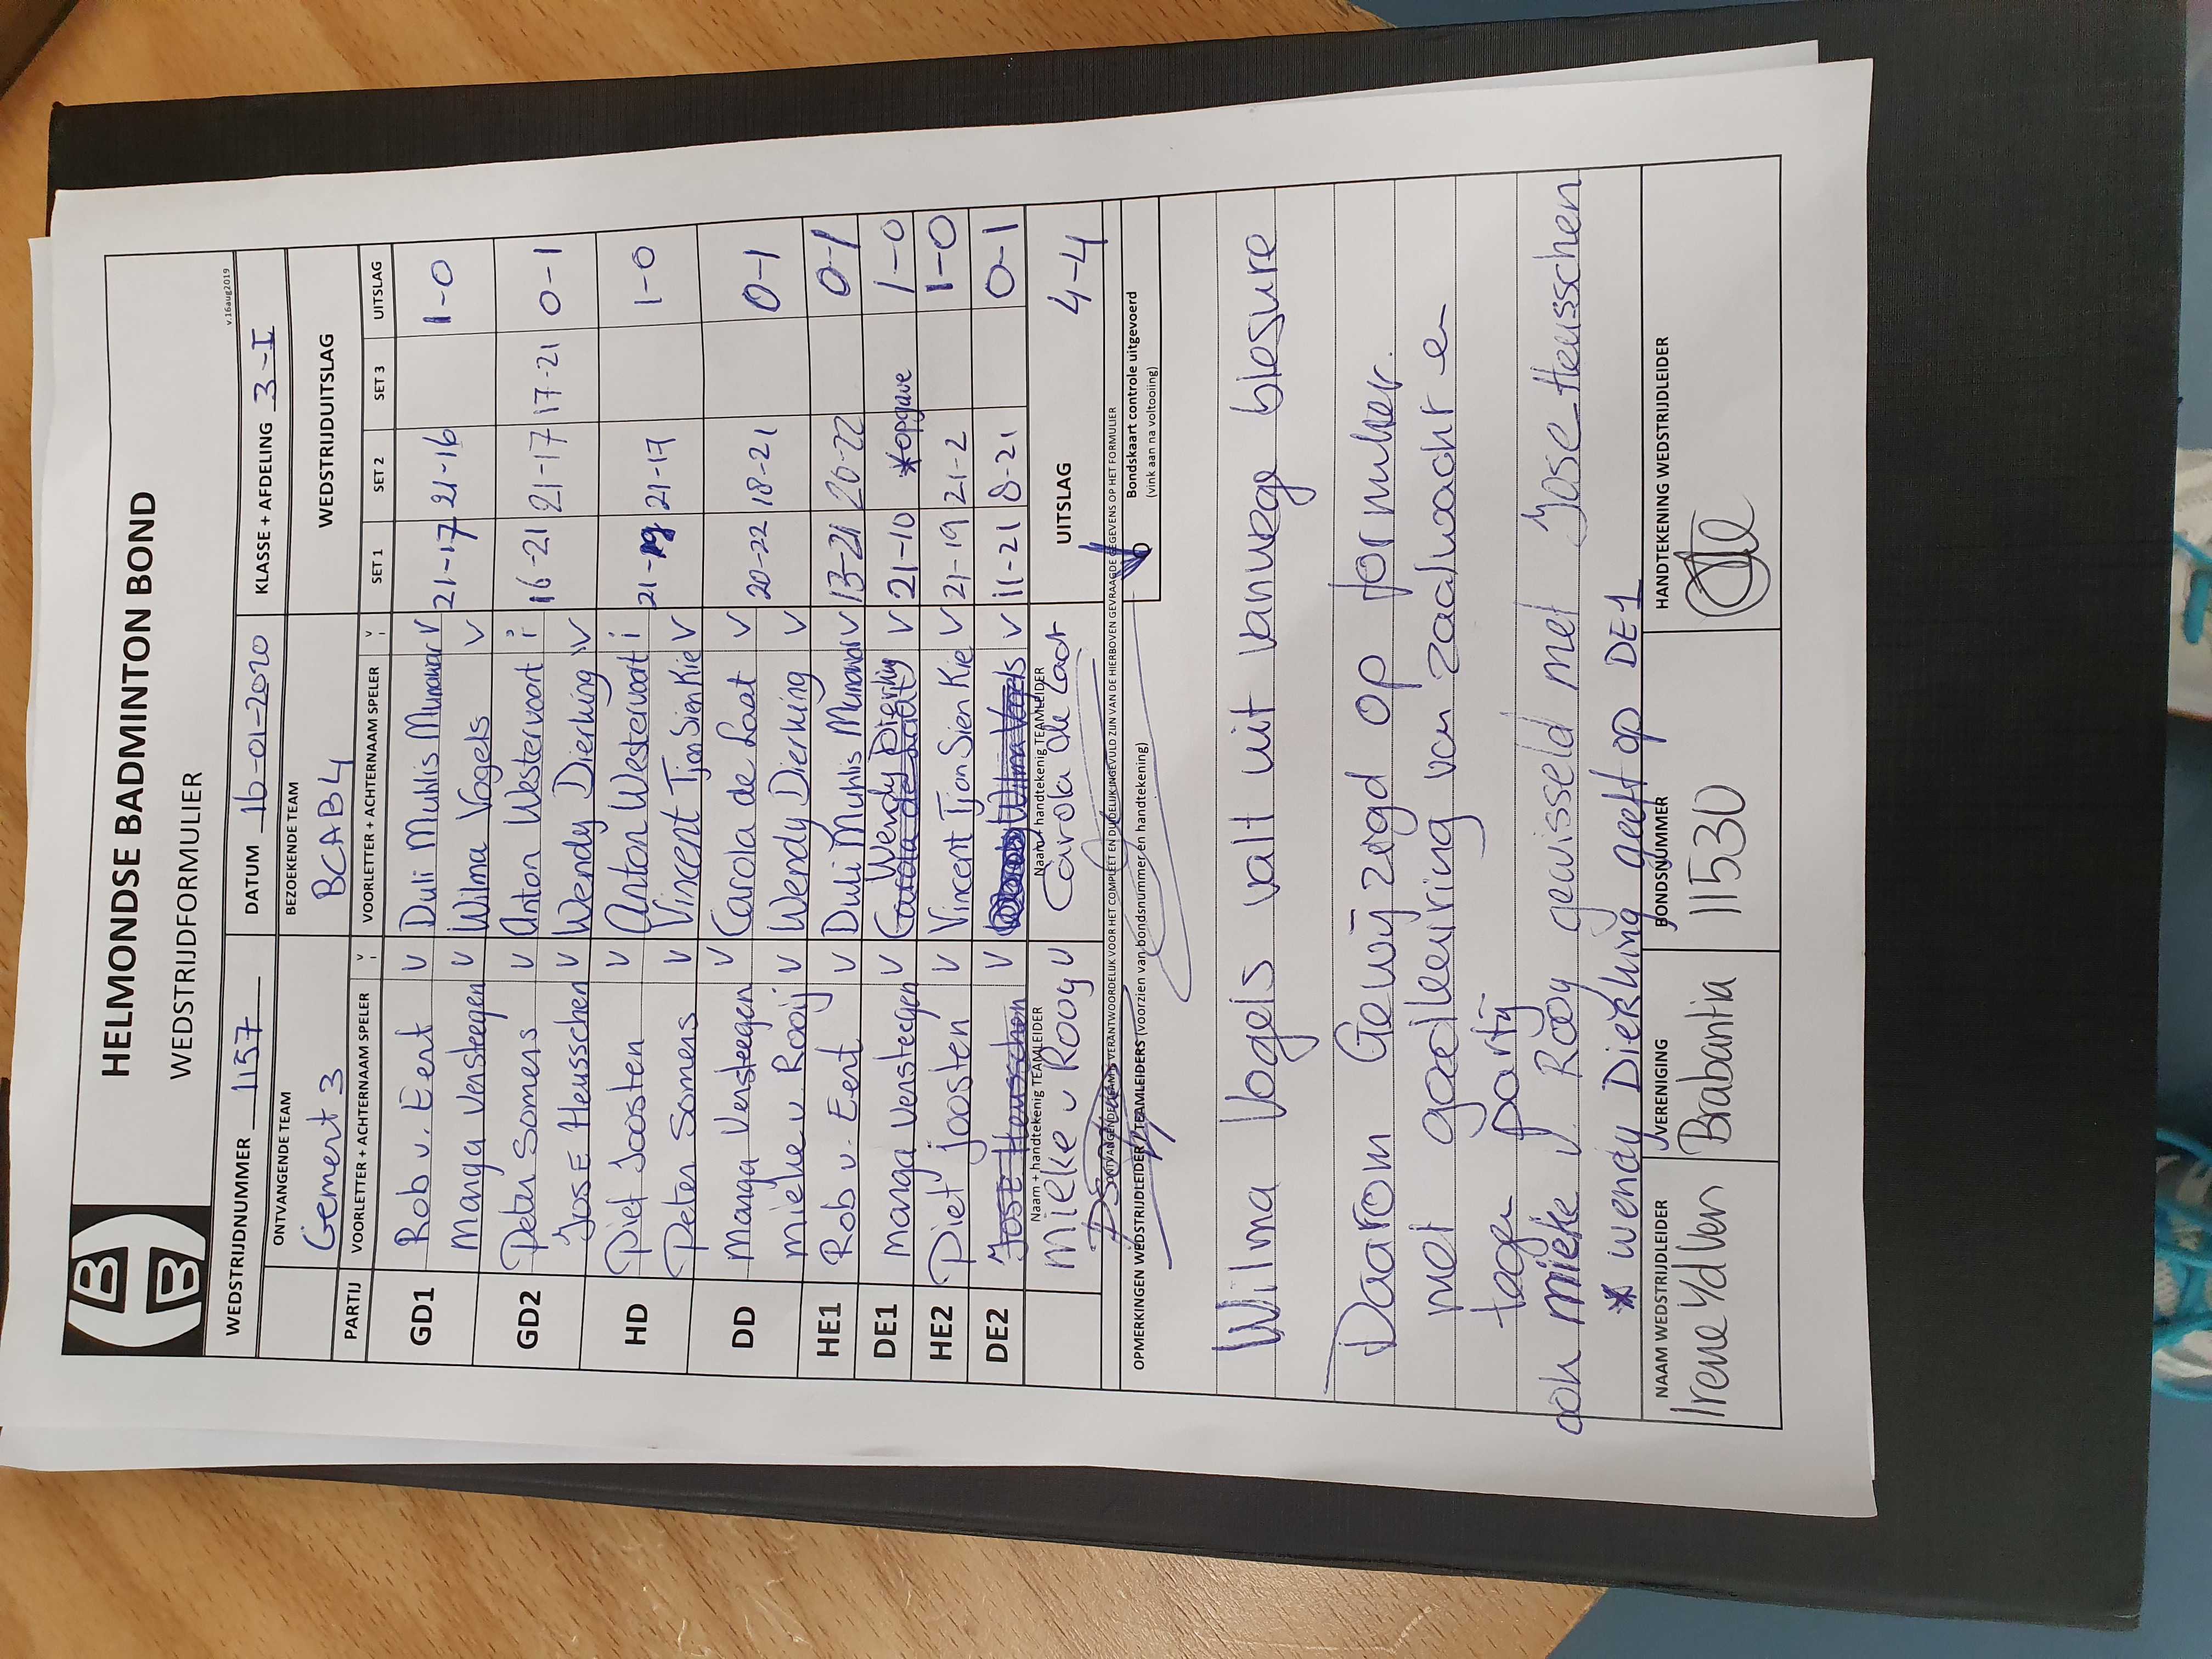 HELMONDSE BADMINTON BOND
WEDSTRIJDFORMULIER
v.16aug2019
WEDSTRIJDNUMMER 1157 DATUM 16-01-2020 KLASSE + AFDELING 3-I
ONTVANGENDE TEAM BEZOEKENDE TEAM WEDSTRIJDUITSLAG
Gemert 3 BCAB 4
PARTIJ VOORLETTER + ACHTERNAAM SPELER V VOORLETTER + ACHTERNAAM SPELER V SET 1 SET 2 SET 3 UITSLAG
GD1 Rob v. Eert V Duli Muhlis Munawar V 21-17 21-16 1-0
Manga Versteegen V Wilma Vogels V
GD2 Peter Somers V Anton Westervoort i 16-21 21-17 17-21 0-1
José Heusschen V Wendy Dierking V
HD Piet Joosten V Anton Westervoort i 21-19 21-17 1-0
Peter Somers V Vincent Tjon Sien Kie V
DD Manga Versteegen V Carola de Laat V 20-22 18-21 0-1
mieke v Rooij V Wendy Dierking V
HE1 Rob v. Eert V Duli Muhlis Munawar V 13-21 20-22 0-1
DE1 manga Versteegen V Carola de Laat Wendy Dierking V 21-10 *opgave 1-0
HE2 Piet Joosten V Vincent Tjon Sien Kie V 21-19 21-2 1-0
DE2 José Heusschen V Wilma Vogels V 11-21 8-21 0-1
Naam + handtekenig TEAMLEIDER Naam + handtekenig TEAMLEIDER UITSLAG 4-4
mieke v Rooy V Carola de Laat
ONTVANGENDE TEAM IS VERANTWOORDELIJK VOOR HET COMPLEET EN DUIDELIJK INGEVULD ZIJN VAN DE HIERBOVEN GEVRAAGDE GEGEVENS OP HET FORMULIER
OPMERKINGEN WEDSTRIJDLEIDER / TEAMLEIDERS (voorzien van bondsnummer en handtekening) Bondskaart controle uitgevoerd
(vink aan na voltooiing)
Wilma Vogels valt uit vanwege blesure
Daarom Gewijzegd op formulier.
met goedkeuring van zaalwacht en
tegen partij
ook mieke v Rooy gewisseld met Jose Heusschen
* wendy Dierking geeft op DE1
NAAM WEDSTRIJDLEIDER VERENIGING BONDSNUMMER HANDTEKENING WEDSTRIJDLEIDER
Irene Brabantia 11530